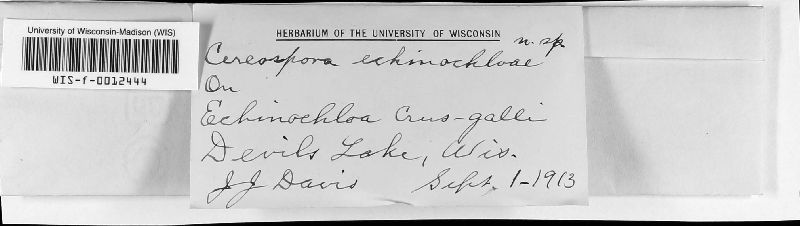 University of Wisconsin-Madison (WIS)
WIS-f-0012444
HERBARIUM OF THE UNIVERSITY OF WISCONSIN
Cercospora echinochloae n. sp.
On
Echinochloa Crus-galli
Devils Lake, Wis.
J J Davis Sept. 1-1913